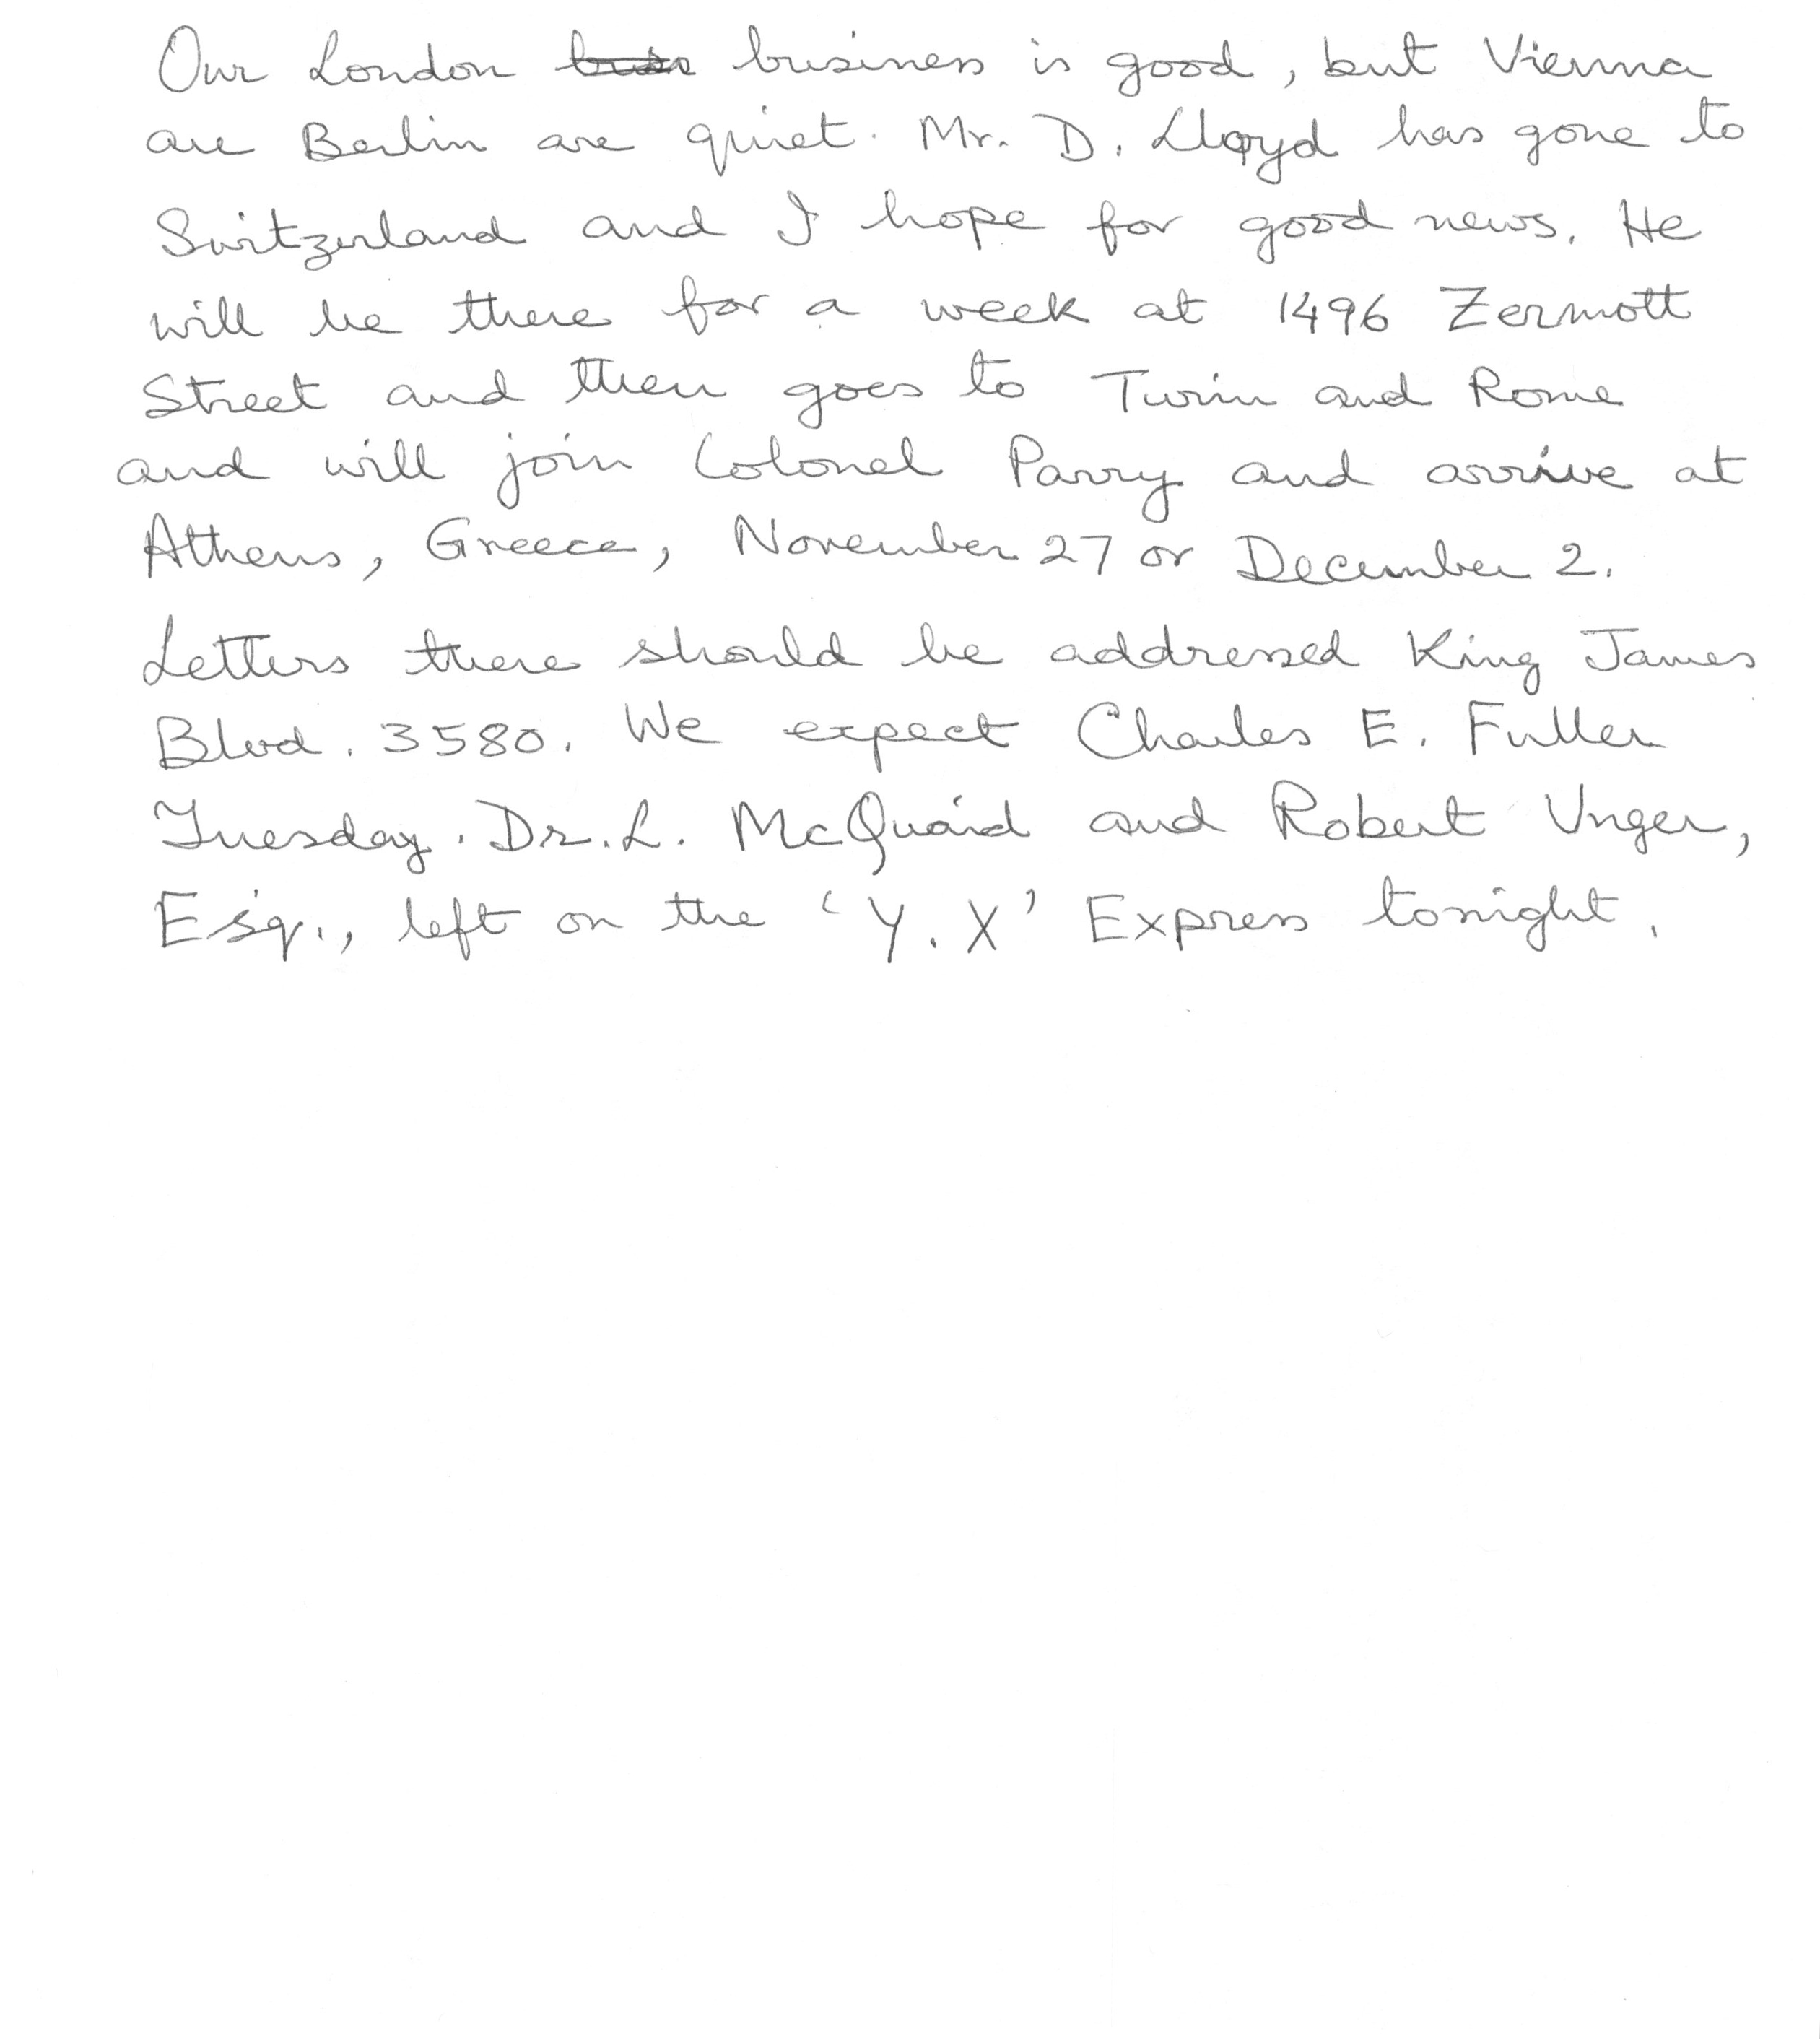 Our London business is good, but Vienna
are Berlin are quiet. Mr. D. Lloyd has gone to
Switzerland and I hope for good news. He
will be there for a week at 1496 Zermott
Street and then goes to Turin and Rome
and will join Colonel Parry and arrive at
Athens, Greece, November 27 or December 2.
Letters there should be addressed King James
Blvd. 3580. We expect Charles E. Fuller
Tuesday. Dr. L. McQuaid and Robert Unger,
Esq., left on the 'Y. X' Express tonight.